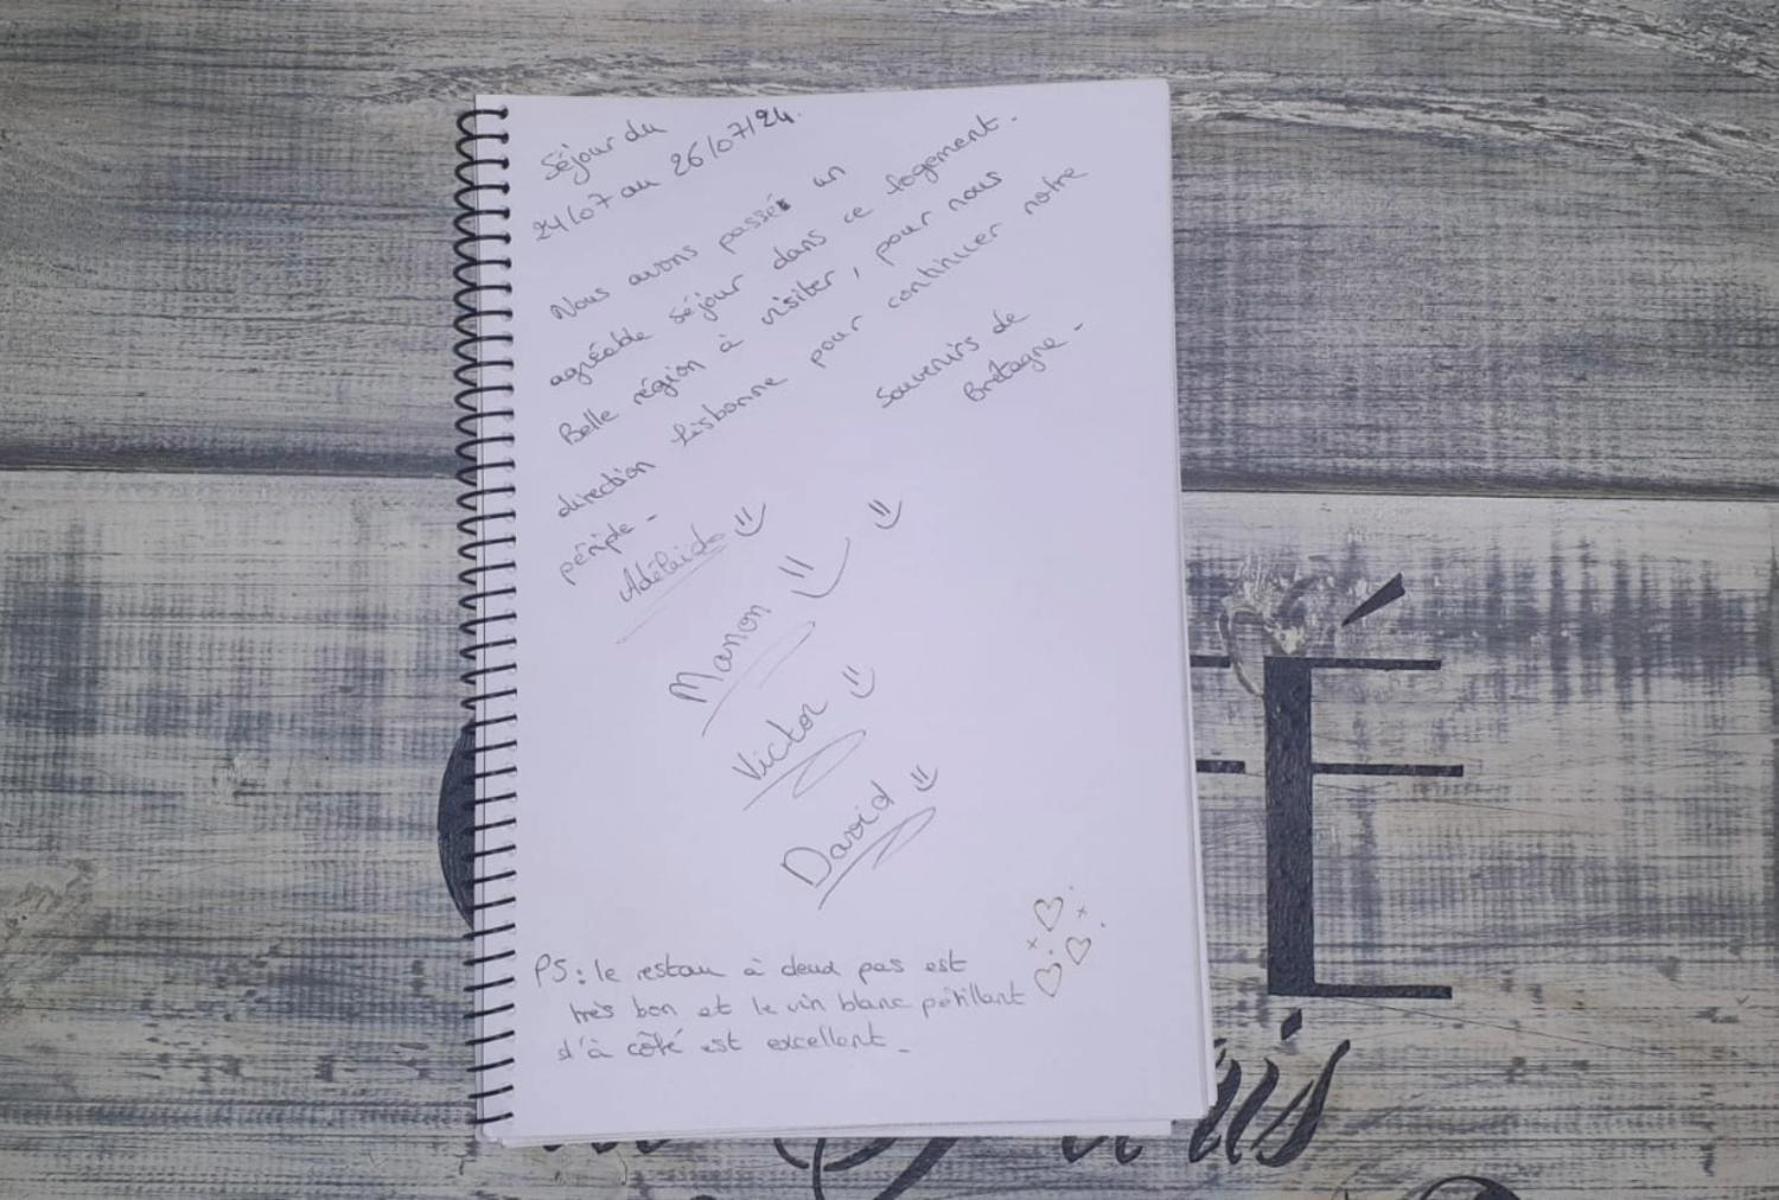 Séjour du
24/07 au 26/07/24.
Nous avons passé un
agréable séjour dans ce logement.
Belle région à visiter, pour nous
direction Lisbonne pour continuer notre
périple -
Souvenirs de
Bretagne -
Adélaïde
Manon
Victor
David
PS: le restau à deux pas est
très bon et le vin blanc pétillant
d'à côté est excellent -
É